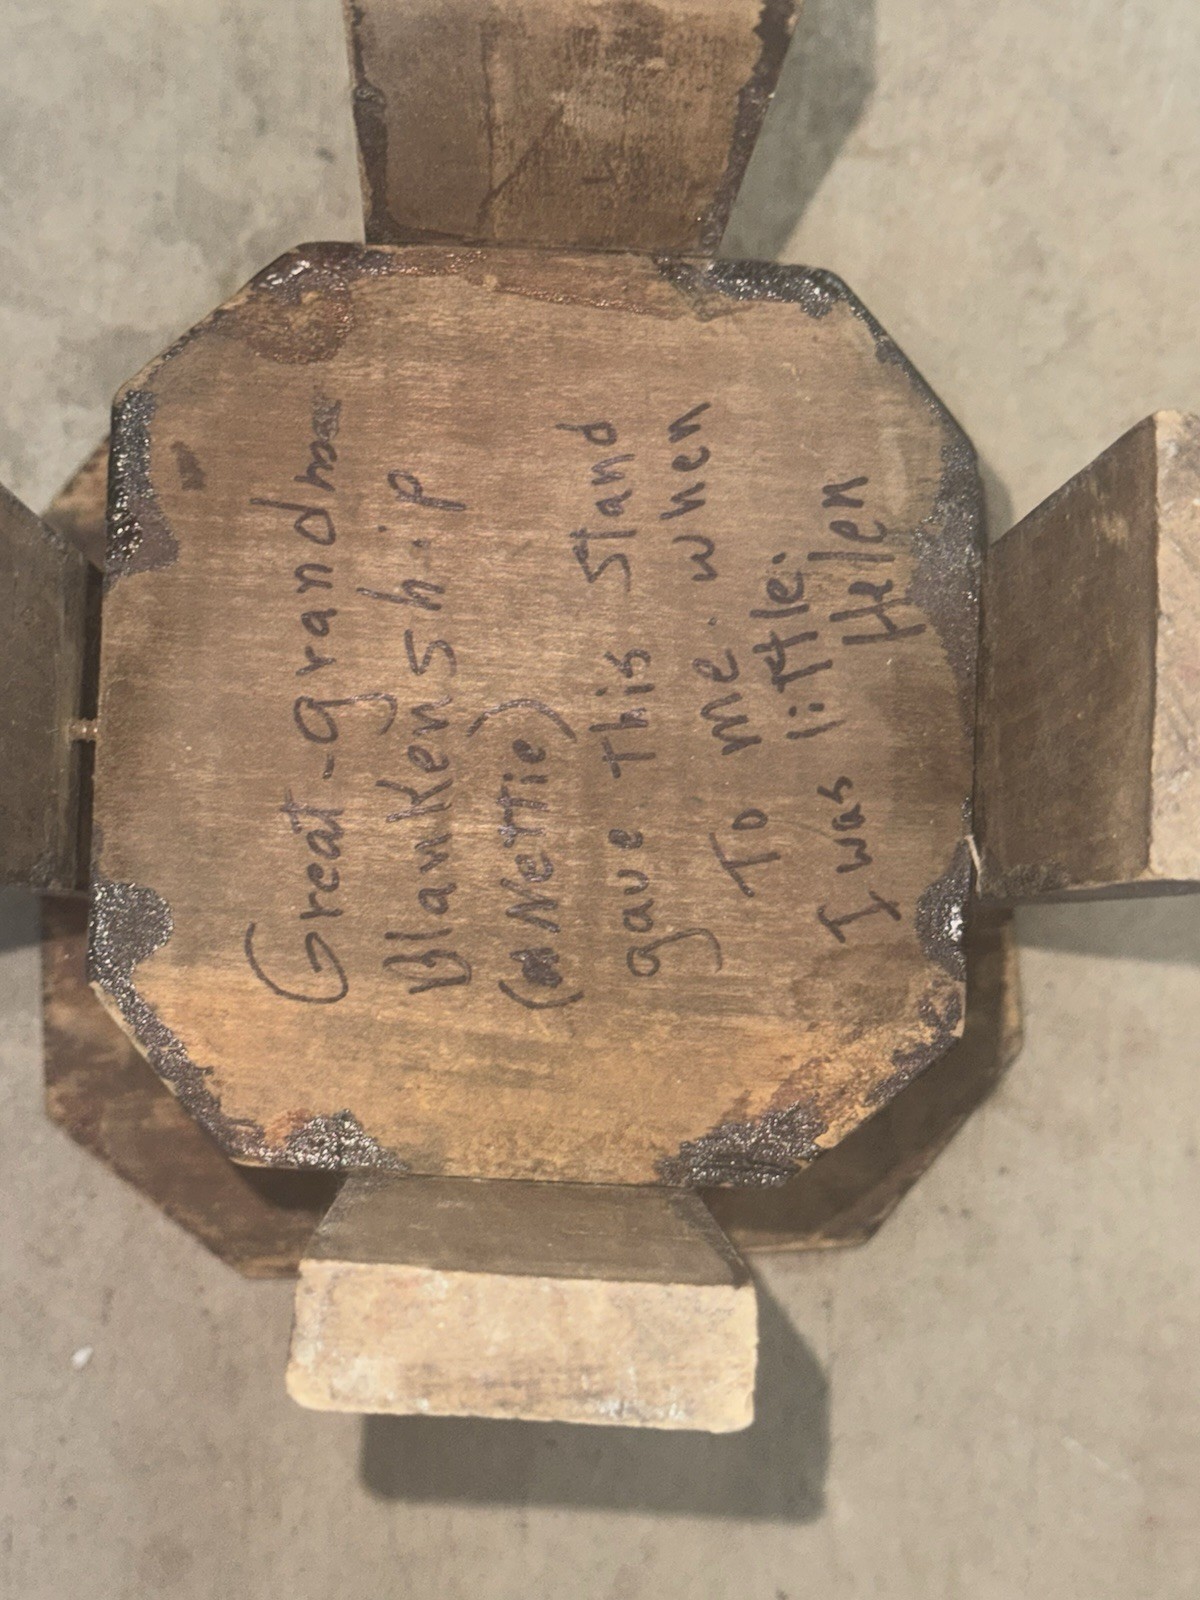 Great-grandma
Blankenship
(Nettie)
gave this stand
To me. when
I was little.
Helen